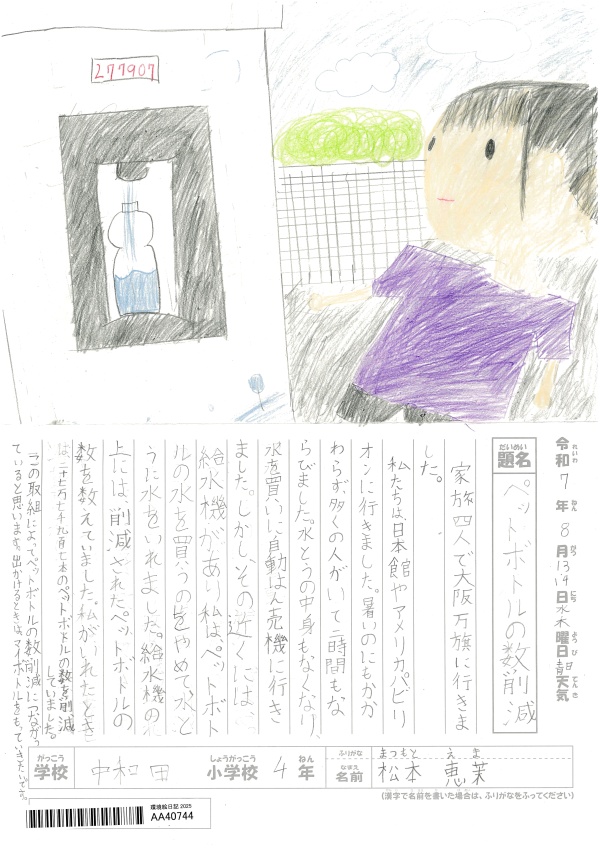 277907
令和 7 年 8 月 13,14 日 水木 曜日 晴 天気
れいわ ねん がつ にち ようび てんき
だいめい
題名 ペットボトルの数削減
家族四人で大阪万旗に行きま
した。
私たちは、日本館やアメリカパビリ
オンに行きました。暑いのにもかか
わらず、多くの人がいて二時間もな
らびました。水とうの中身もなくなり、
水を買いに自動はん売機に行き
ました。しかし、その近くには、
給水機があり私は、ペットボト
ルの水を買うのをやめて、水と
うに水をいれました。給水機の
上には、削減されたペットボトルの
数を数えていました。私がいれたとき
は、二十七万七千九百七本のペットボトルの数を削減
していました。
この取組によってペットボトルの数削減につながっ
ていると思います。出かけるときは、マイボトルをもっていきたいです。
がっこう しょうがっこう ねん
学校 中和田 小学校 4 年
ふりがな まつもと えま
なまえ
名前 松本 恵茉
(漢字で名前を書いた場合は、ふりがなをふってください)
環境絵日記 2025
AA40744